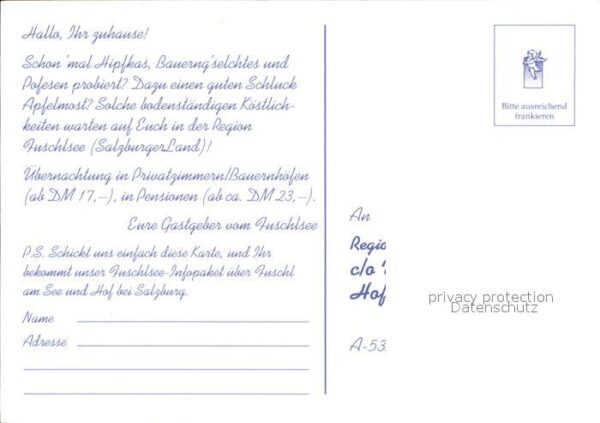 Hallo, Ihr zuhause!
Schon 'mal Hipfkas, Bauerng'selchtes und
Pofesen probiert? Dazu einen guten Schluck
Apfelmost? Solche bodenständigen Köstlich-
keiten warten auf Euch in der Region
Fuschlsee (SalzburgerLand)!
Übernachtung in Privatzimmern/Bauernhöfen
(ab DM 17,–), in Pensionen (ab ca. DM 23,–).
Eure Gastgeber vom Fuschlsee
P.S. Schickt uns einfach diese Karte, und Ihr
bekommt unser Fuschlsee-Infopaket über Fuschl
am See und Hof bei Salzburg.
Name
Adresse
Bitte ausreichend
frankieren
An
Regio
c/o
Hof
A-53
privacy protection
Datenschutz